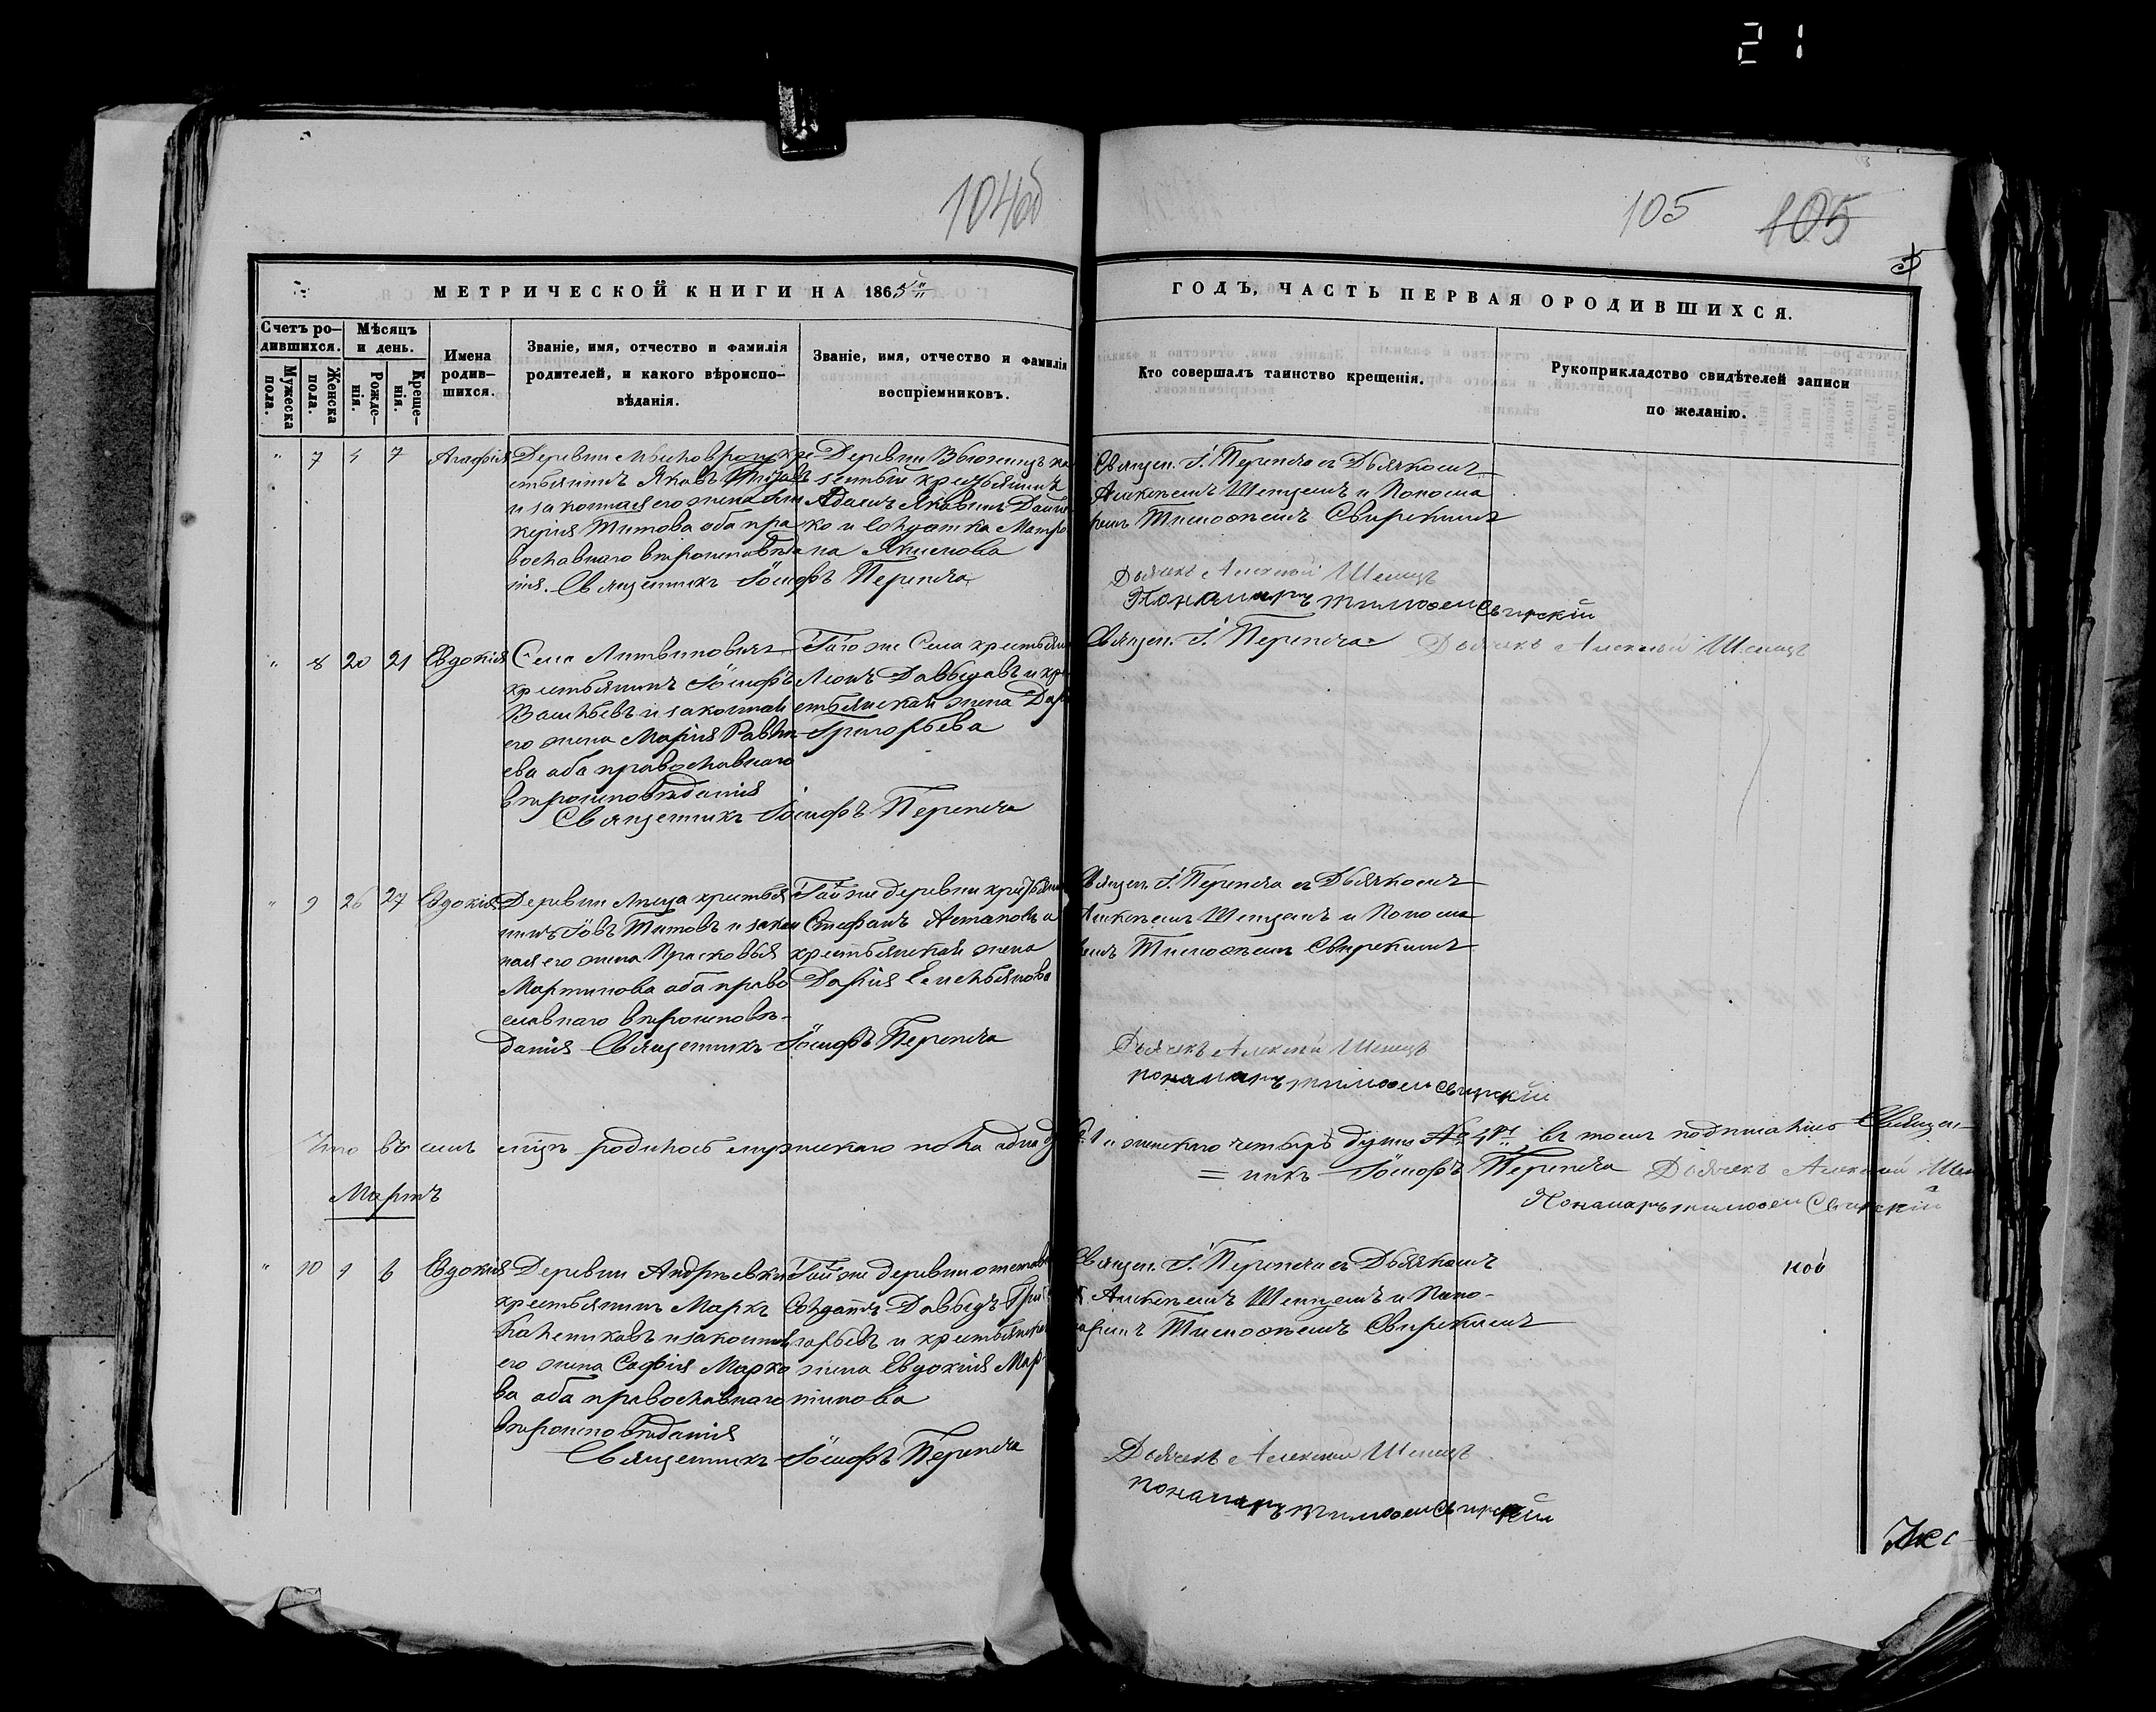 21
104об
105 105
МЕТРИЧЕСКОЙ КНИГИ НА 1865
ГОДЪ, ЧАСТЬ ПЕРВАЯ О РОДИВШИХСЯ.
Счетъ ро-
дившихся.
Мужеска
пола.
Женска
пола.
Мѣсяцъ
и день.
Рожде-
нія.
Креще-
нія.
Имена
родив-
шихся.
Званіе, имя, отчество и фамилія
родителей, и какого вѣроиспо-
вѣданія.
Званіе, имя, отчество и фамилія
воспріемниковъ.
Кто совершалъ таинство крещенія.
Рукоприкладство свидѣтелей записи
по желанію.
" 7 4 7 Агафія
Деревни кре-
стьянинъ Яковъ
и законная его жена
Титова оба пра
вославнаго вѣроисповѣда
нія. Священникъ Іосифъ Перепеча
Деревни
крестьянинъ
Адамъ Яковинъ
ко и солдатка Матро
на Якимова
Священ. І. Перепеча съ Дьячкомъ
Алексѣемъ Шепцемъ и Понома
ремъ Тимофѣемъ Свирскимъ
Дьячекъ Алексѣй Шепецъ
Понамаръ тимофей Свирскій
" 8 20 21 Евдокія
Села Литвиновичъ
крестьянинъ Іосифъ
Васильевъ и законная
его жена Марія
ева оба православнаго
вѣроисповѣданія
Священникъ Іосифъ Перепеча
Того же Села крестьян
Леонъ Давыдавъ и кре
стьянская жена Дар
Григорьева
Священ. І. Перепеча Дьячекъ Алексѣй Шепецъ
" 9 26 27 Евдокія
Деревни крестья
нинъ Іовъ Титовъ и закон
ная его жена Прасковья
Мартинова оба право
славнаго вѣроисповѣ-
данія Священникъ Іосифъ Перепеча
Той же деревни крестьянин
Стефанъ Астаповъ и
крестьянская жена
Дарія Емельянова
Священ. І. Перепеча съ Дьячкомъ
Алексѣемъ Шепцемъ и Понома
ремъ Тимофѣемъ Свирскимъ
Дьячекъ Алексѣй Шепецъ
понамаръ тимофей Свирскій
Что въ семъ мцѣ родилось мужескаго пола одна д № 1 и женскаго четырѣ души № 4 въ томъ подписались Священ-
= никъ Іосифъ Перепеча Дьячекъ Алексѣй Шеп
Понамаръ тимофей Свирскій
Мартъ
" 10 1 6 Евдокія
Деревни Андрѣевки
крестьянинъ Маркъ
и законная
его жена Софія Марко
ва оба православнаго
вѣроисповѣданія
Священникъ Іосифъ Перепеча
Той же деревни отставн
Солдатъ Давыдъ Гри
горьевъ и крестьянская
жена Евдокія Мар-
тинова
Священ. І. Перепеча съ Дьячкомъ
Алексѣемъ Шепцемъ и Поно-
маремъ Тимофѣемъ Свирскимъ
ной
Дьячекъ Алексѣй Шепецъ
понамаръ тимофей Свирскій